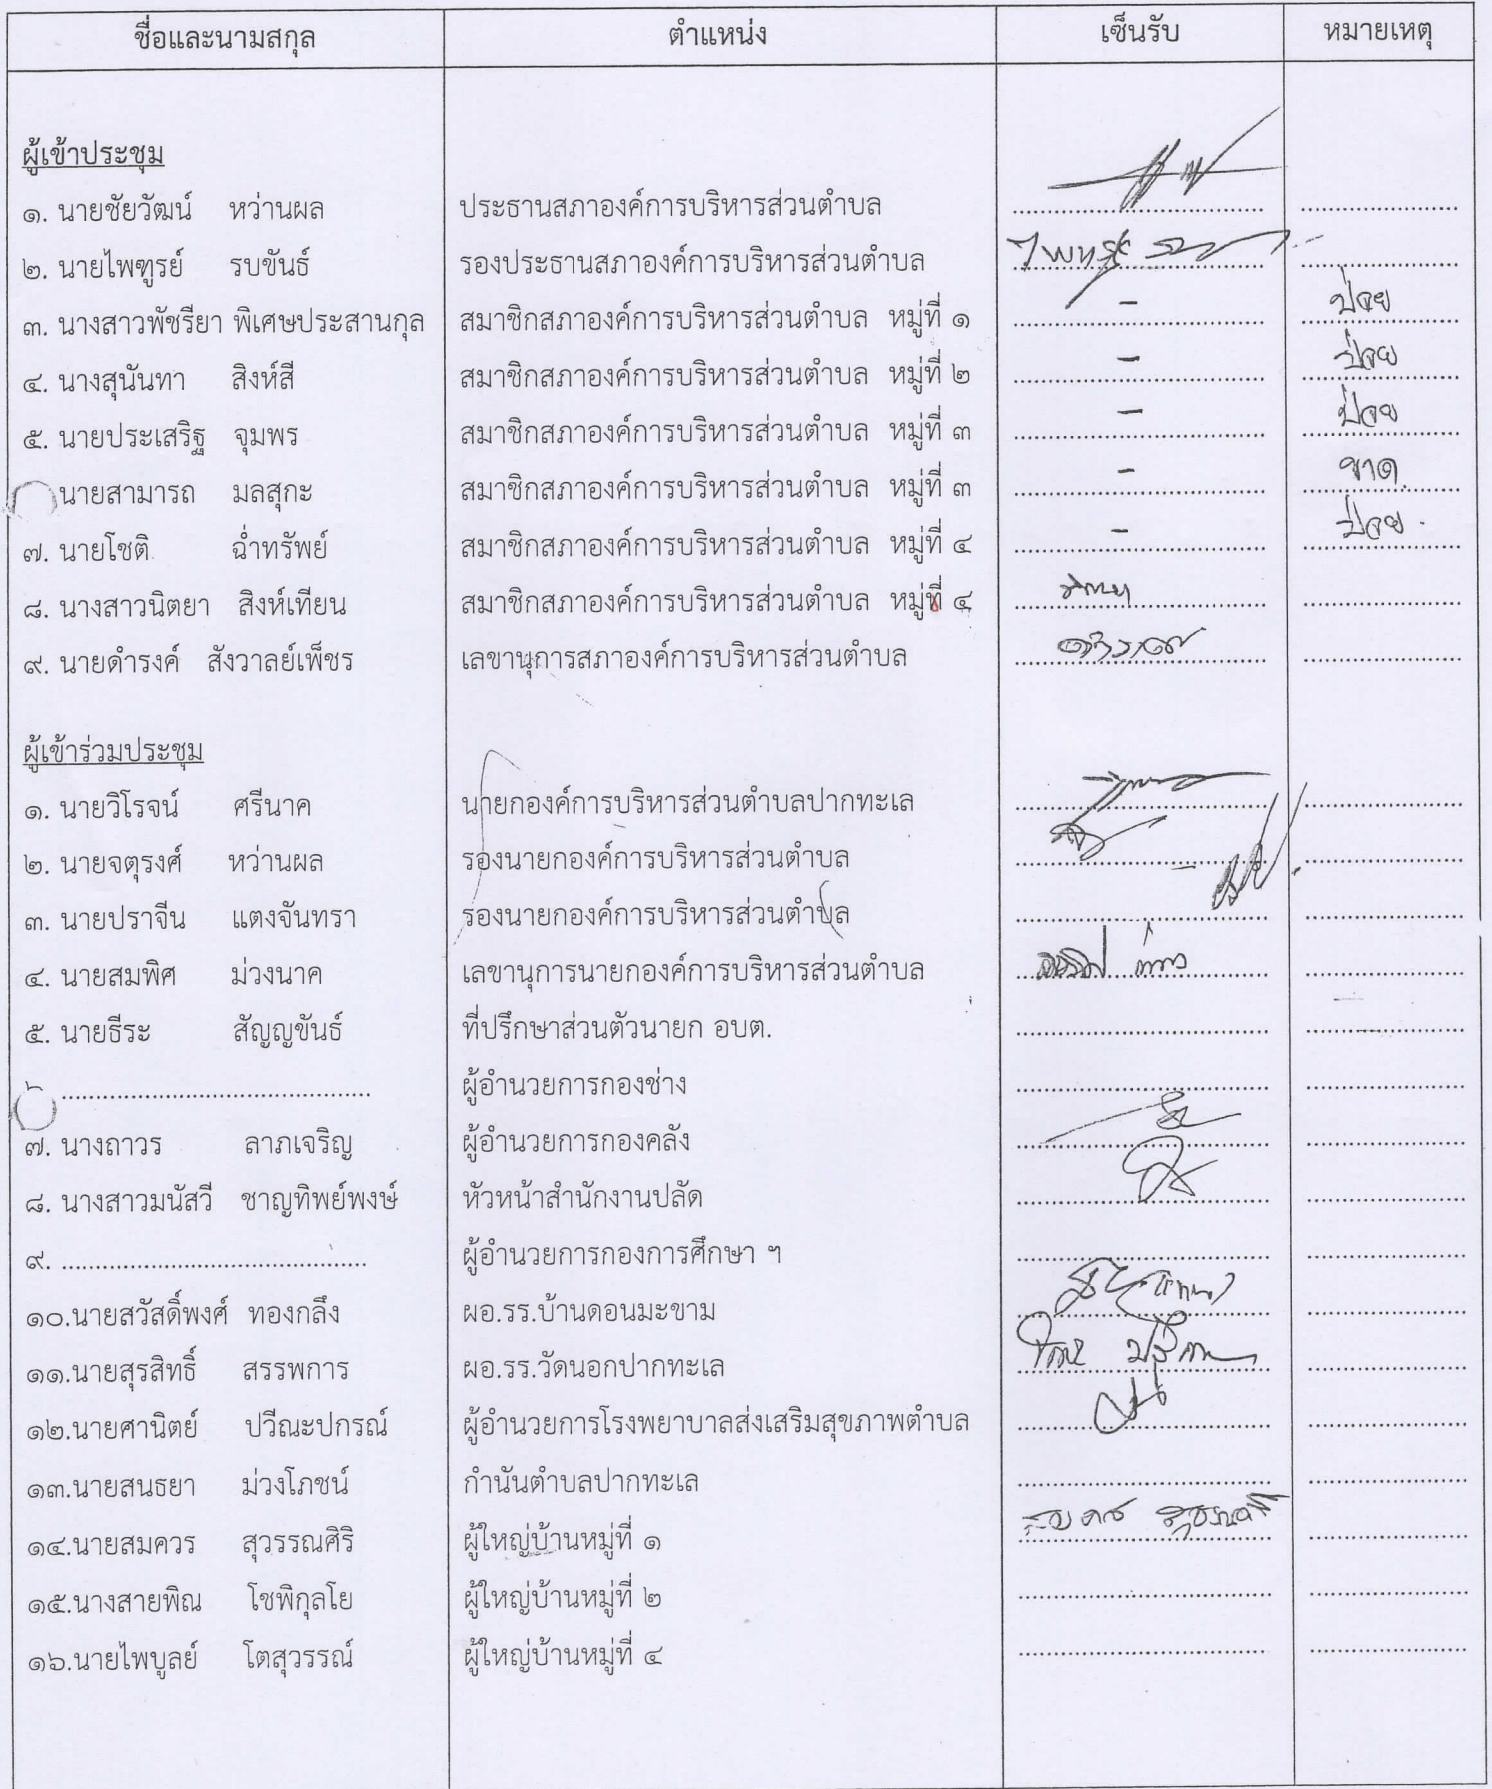 ชื่อและนามสกุล ตำแหน่ง เซ็นรับ หมายเหตุ
ผู้เข้าประชุม
๑. นายชัยวัฒน์ หว่านผล ประธานสภาองค์การบริหารส่วนตำบล
๒. นายไพฑูรย์ รบขันธ์ รองประธานสภาองค์การบริหารส่วนตำบล
๓. นางสาวพัชรียา พิเศษประสานกุล สมาชิกสภาองค์การบริหารส่วนตำบล หมู่ที่ ๑ - ป่วย
๔. นางสุนันทา สิงห์สี สมาชิกสภาองค์การบริหารส่วนตำบล หมู่ที่ ๒ - ป่วย
๕. นายประเสริฐ จุมพร สมาชิกสภาองค์การบริหารส่วนตำบล หมู่ที่ ๓ - ป่วย
นายสามารถ มลสุกะ สมาชิกสภาองค์การบริหารส่วนตำบล หมู่ที่ ๓ - ขาด
๗. นายโชติ ฉ่ำทรัพย์ สมาชิกสภาองค์การบริหารส่วนตำบล หมู่ที่ ๔ - ป่วย
๘. นางสาวนิตยา สิงห์เทียน สมาชิกสภาองค์การบริหารส่วนตำบล หมู่ที่ ๔
๙. นายดำรงค์ สังวาลย์เพ็ชร เลขานุการสภาองค์การบริหารส่วนตำบล
ผู้เข้าร่วมประชุม
๑. นายวิโรจน์ ศรีนาค นายกองค์การบริหารส่วนตำบลปากทะเล
๒. นายจตุรงศ์ หว่านผล รองนายกองค์การบริหารส่วนตำบล
๓. นายปราจีน แตงจันทรา รองนายกองค์การบริหารส่วนตำบล
๔. นายสมพิศ ม่วงนาค เลขานุการนายกองค์การบริหารส่วนตำบล
๕. นายธีระ สัญญขันธ์ ที่ปรึกษาส่วนตัวนายก อบต.
............................................. ผู้อำนวยการกองช่าง
๗. นางถาวร ลาภเจริญ ผู้อำนวยการกองคลัง
๘. นางสาวมนัสวี ชาญทิพย์พงษ์ หัวหน้าสำนักงานปลัด
๙. ............................................. ผู้อำนวยการกองการศึกษา ฯ
๑๐.นายสวัสดิ์พงศ์ ทองกลึง ผอ.รร.บ้านดอนมะขาม
๑๑.นายสุรสิทธิ์ สรรพการ ผอ.รร.วัดนอกปากทะเล
๑๒.นายศานิตย์ ปวีณะปกรณ์ ผู้อำนวยการโรงพยาบาลส่งเสริมสุขภาพตำบล
๑๓.นายสนธยา ม่วงโภชน์ กำนันตำบลปากทะเล
๑๔.นายสมควร สุวรรณศิริ ผู้ใหญ่บ้านหมู่ที่ ๑
๑๕.นางสายพิณ โชพิกุลโย ผู้ใหญ่บ้านหมู่ที่ ๒
๑๖.นายไพบูลย์ โตสุวรรณ์ ผู้ใหญ่บ้านหมู่ที่ ๔